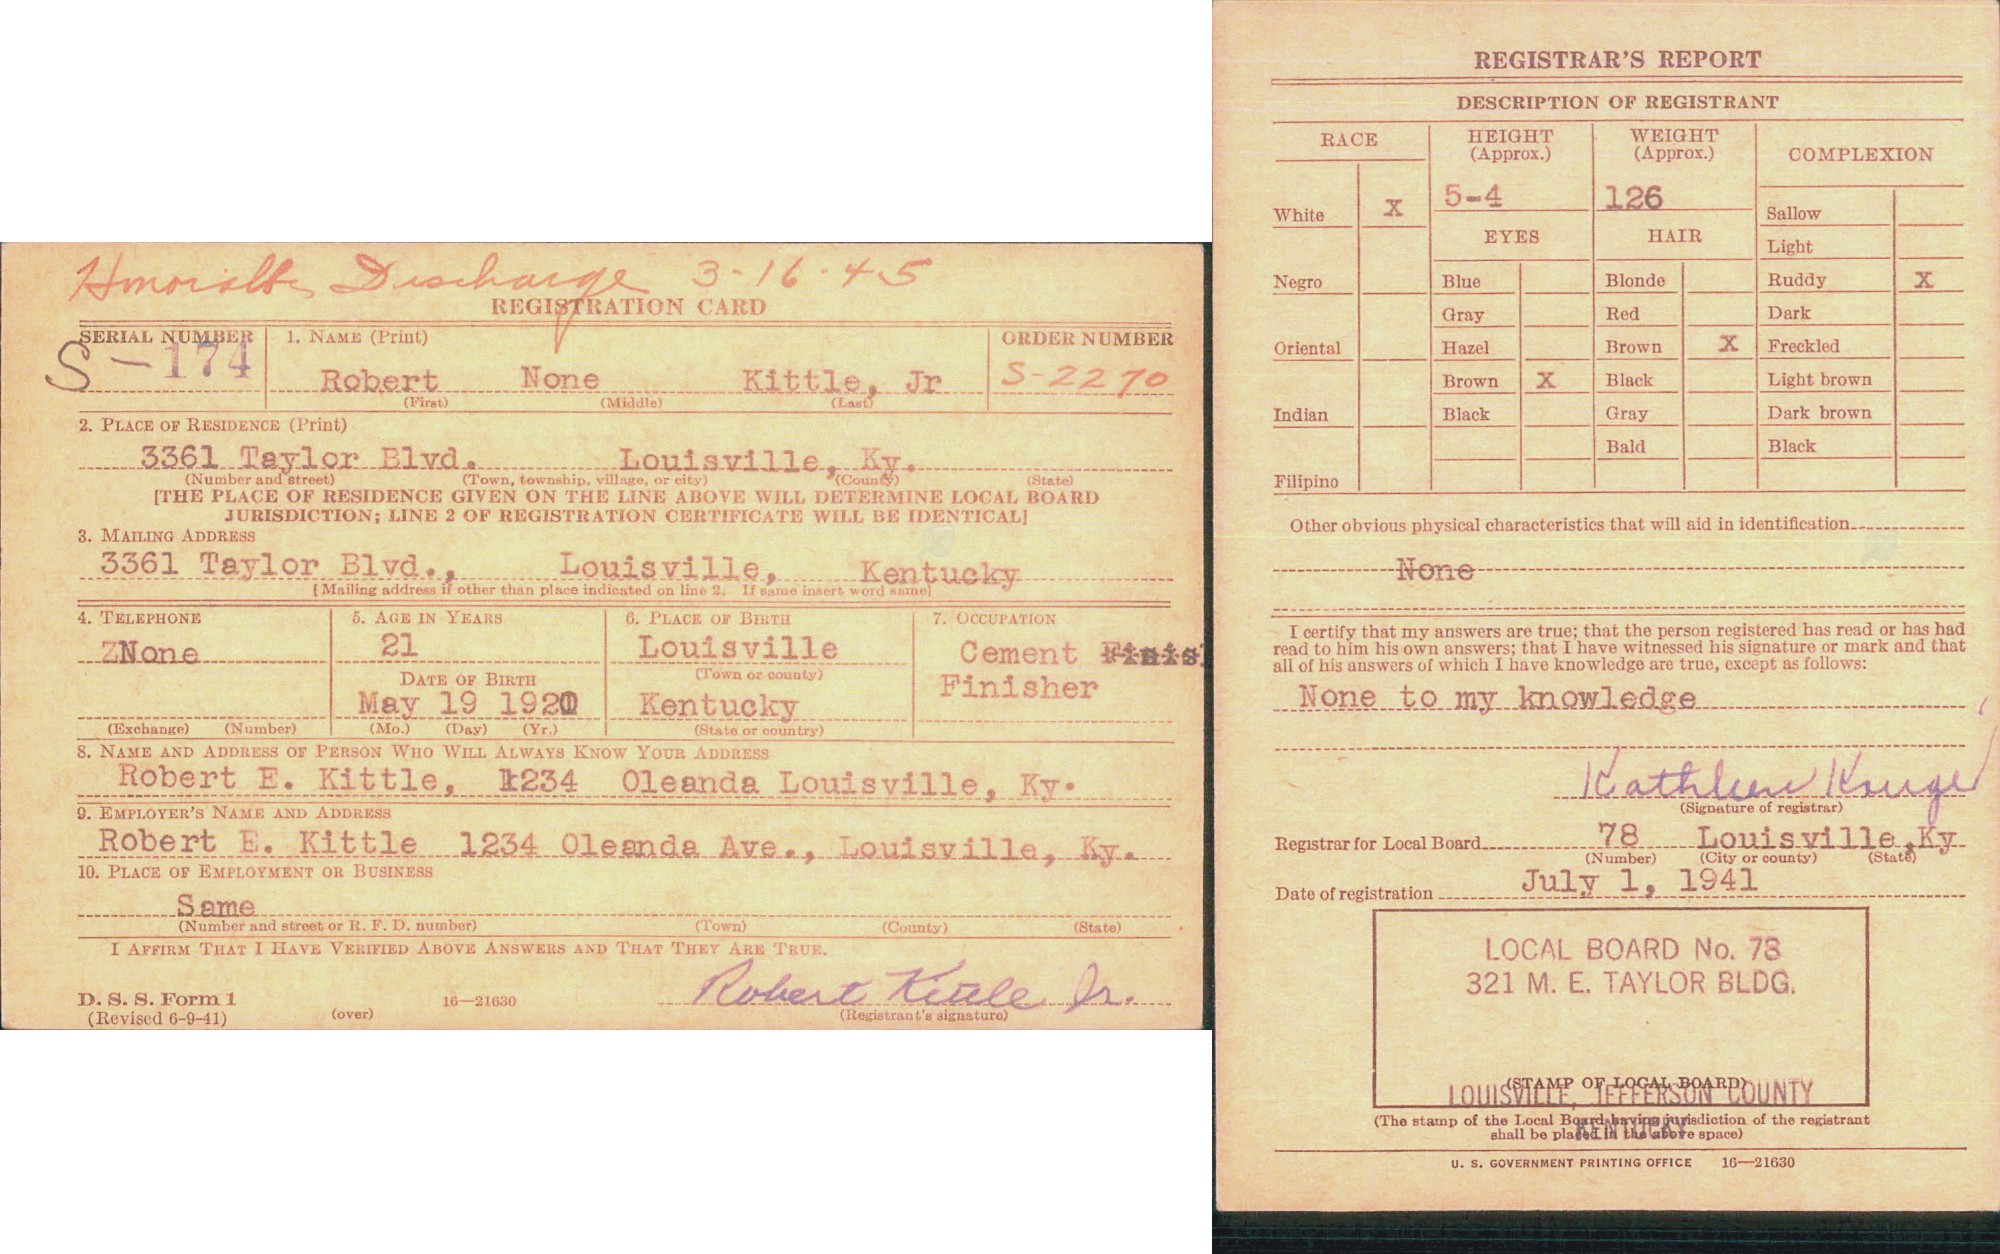 Honorable Discharge 3-16-45
REGISTRATION CARD
SERIAL NUMBER
S-174
1. NAME (Print)
Robert None Kittle, Jr
(First) (Middle) (Last)
ORDER NUMBER
S-2270
2. PLACE OF RESIDENCE (Print)
3361 Taylor Blvd. Louisville, Ky.
(Number and street) (Town, township, village, or city) (County) (State)
[THE PLACE OF RESIDENCE GIVEN ON THE LINE ABOVE WILL DETERMINE LOCAL BOARD
JURISDICTION; LINE 2 OF REGISTRATION CERTIFICATE WILL BE IDENTICAL]
3. MAILING ADDRESS
3361 Taylor Blvd., Louisville, Kentucky
[Mailing address if other than place indicated on line 2. If same insert word same]
4. TELEPHONE
None
(Exchange) (Number)
5. AGE IN YEARS
21
DATE OF BIRTH
May 19 192
(Mo.) (Day) (Yr.)
6. PLACE OF BIRTH
Louisville
(Town or county)
Kentucky
(State or country)
7. OCCUPATION
Cement Finis
Finisher
8. NAME AND ADDRESS OF PERSON WHO WILL ALWAYS KNOW YOUR ADDRESS
Robert E. Kittle, 1234 Oleanda Louisville, Ky.
9. EMPLOYER'S NAME AND ADDRESS
Robert E. Kittle 1234 Oleanda Ave., Louisville, Ky.
10. PLACE OF EMPLOYMENT OR BUSINESS
Same
(Number and street or R. F. D. number) (Town) (County) (State)
I AFFIRM THAT I HAVE VERIFIED ABOVE ANSWERS AND THAT THEY ARE TRUE.
Robert Kittle Jr.
D. S. S. Form 1
(Revised 6-9-41) (over) 16—21630 (Registrant's signature)
REGISTRAR'S REPORT
DESCRIPTION OF REGISTRANT
RACE
White X
Negro
Oriental
Indian
Filipino
HEIGHT
(Approx.)
5-4
WEIGHT
(Approx.)
126
EYES
Blue
Gray
Hazel
Brown X
Black
HAIR
Blonde
Red
Brown X
Black
Gray
Bald
COMPLEXION
Sallow
Light
Ruddy X
Dark
Freckled
Light brown
Dark brown
Black
Other obvious physical characteristics that will aid in identification
None
I certify that my answers are true; that the person registered has read or has had
read to him his own answers; that I have witnessed his signature or mark and that
all of his answers of which I have knowledge are true, except as follows:
None to my knowledge
Kathleen Kruger
(Signature of registrar)
Registrar for Local Board 78 Louisville, Ky
(Number) (City or county) (State)
Date of registration July 1, 1941
LOCAL BOARD No. 78
321 M. E. TAYLOR BLDG.
(STAMP OF LOCAL BOARD)
LOUISVILLE, JEFFERSON COUNTY
KENTUCKY
(The stamp of the Local Board having jurisdiction of the registrant
shall be placed in the above space)
U. S. GOVERNMENT PRINTING OFFICE 16—21630